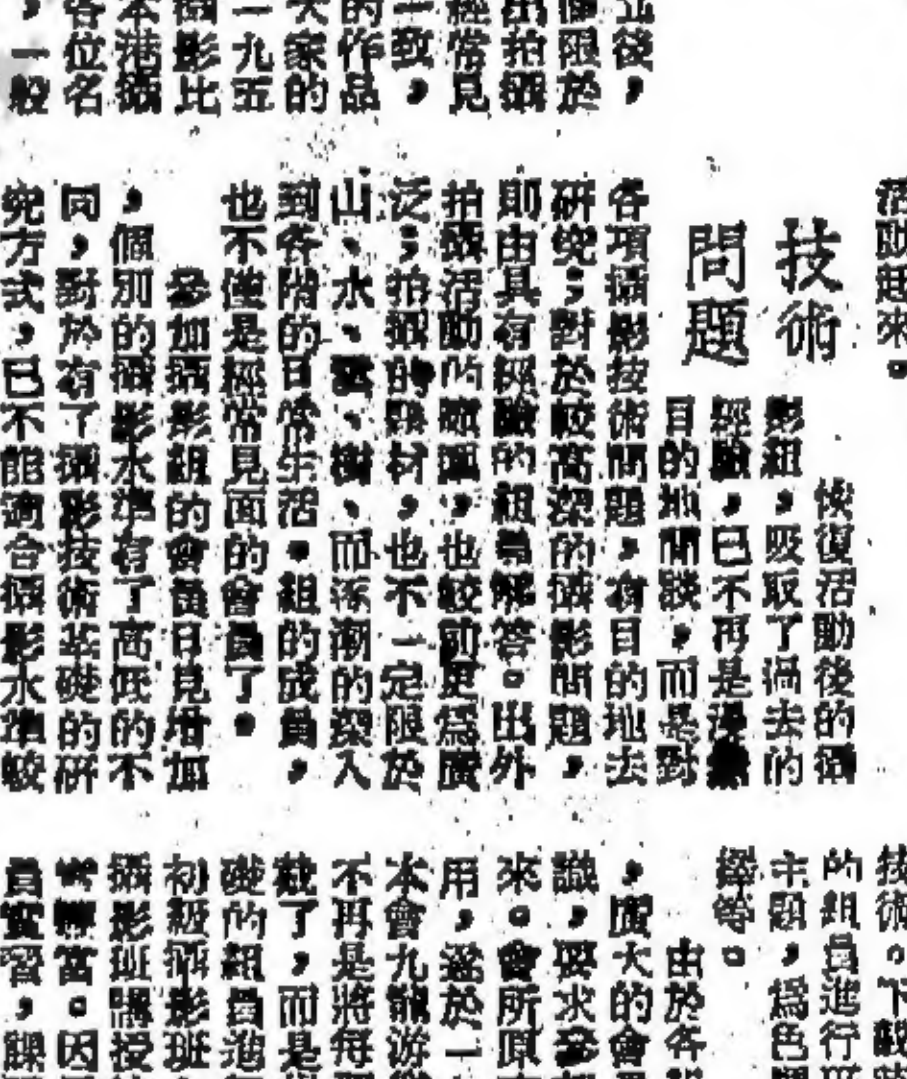 後，
限於
出拍攝
經常見
一致，
的作品
大家的
一九五
攝影比
本港攝
各位名
，一般
活動起來。
技術
問題
恢復活動後的攝
影組，吸取了過去的
經驗，已不再是漫無
目的地閒談，而是對
各項攝影技術問題，有目的地去
研究；對於較高深的攝影問題，
則由具有經驗的組員解答。出外
拍攝活動的範圍，也較前更爲廣
泛；拍攝的題材，也不一定限於
山、水、雲、樹、而逐漸的深入
到各階的日常生活。組的成員，
也不僅是經常見面的會員了。
參加攝影組的會員日見增加
，個別的攝影水準有了高低的不
同，對於有了攝影技術基礎的研
究方式，已不能適合攝影水準較
技術。下
的組員進行
主題，爲色
等。
由於各
，廣大的會
識，要求參
來。會所原
用，遂於一
本會九龍游
不再是將每
了，而是
礎的組員進
初級攝影班
攝影班講授
。因
員實習，課